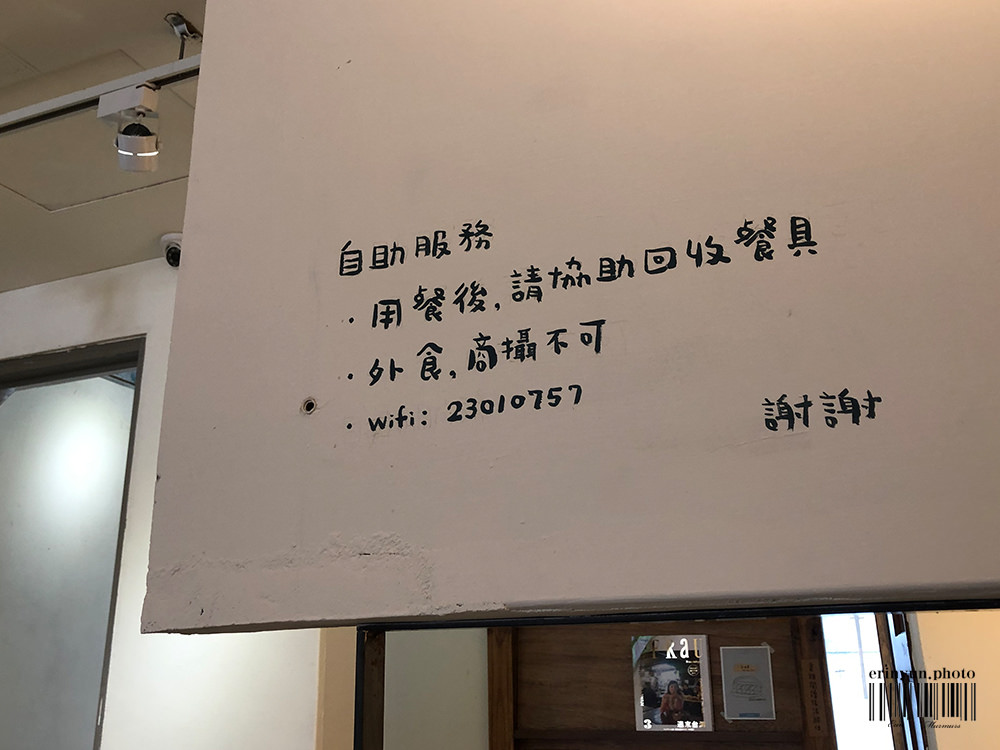 自助服務
・用餐後,請協助回收餐具
・外食,商攝不可
・wifi: 23010757
謝謝
3
erinyun.photo